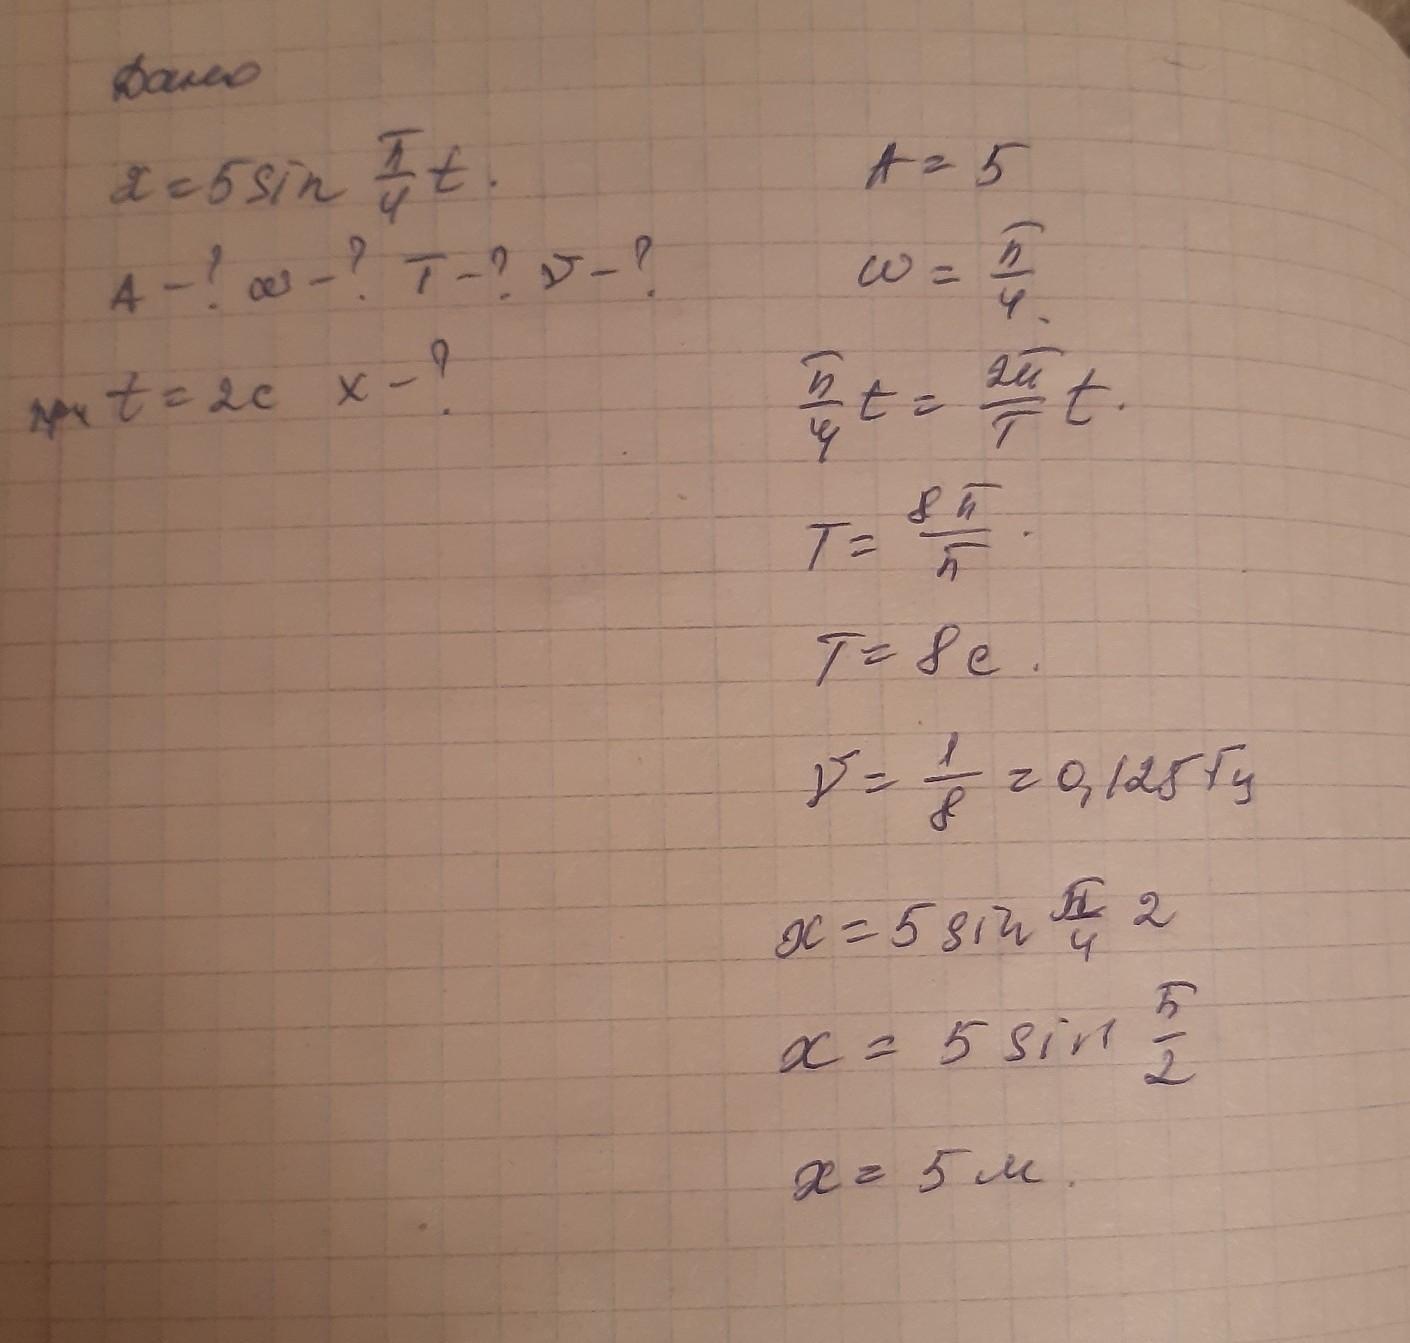 Дано
x = 5 sin π/4 t.
A - ? ω - ? T - ? ν - ?
при t = 2с x - ?
A = 5
ω = π/4.
π/4 t = 2π/T t.
T = 8π/π.
T = 8с.
ν = 1/8 = 0,125 Гц
x = 5 sin π/4 2
x = 5 sin π/2
x = 5 м.